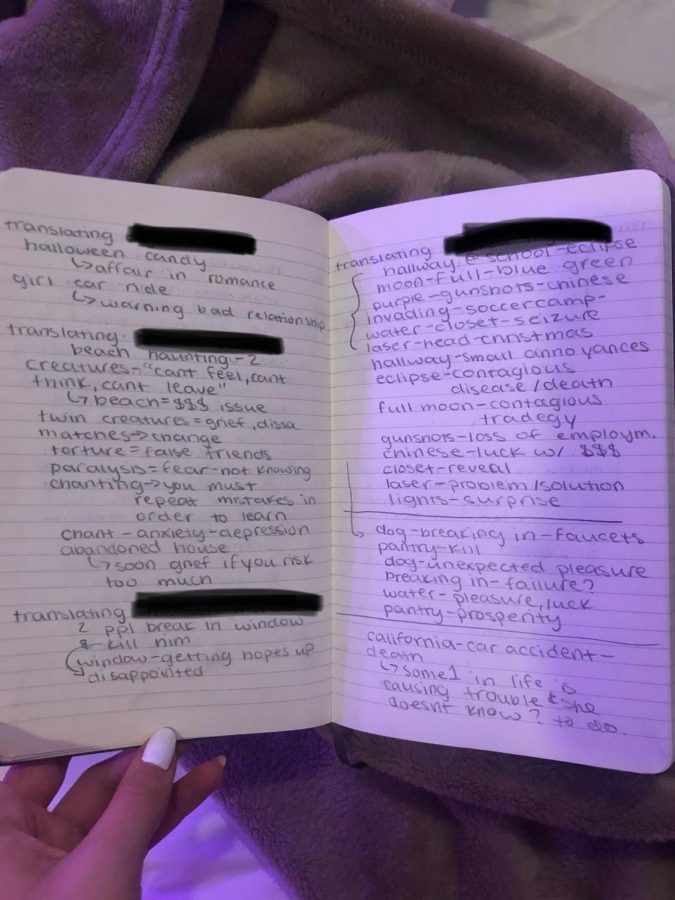 translating
halloween candy
↳affair in romance
girl car ride
↳warning bad relationship
translating
beach haunting-2
creatures-"cant feel, cant
think, cant leave"
↳beach=$$$ issue
twin creatures=grief, dissa.
matches→change
torture=false friends
paralysis=fear-not knowing
chanting→you must
repeat mistakes in
order to learn
chant-anxiety-depression
abandoned house
↳soon grief if you risk
too much
translating
2 ppl break in window
& kill him
window-getting hopes up
disappointed
translating
hallway @ school-eclipse
moon-full-blue green
purple-gunshots-chinese
invading-soccercamp-
water-closet-seizure
laser-head-christmas
hallway-small annoyances
eclipse-contagious
disease/death
full moon-contagious
tradegy
gunshots-loss of employm.
chinese-luck w/ $$$
closet-reveal
laser-problem/solution
lights-surprise
dog-breaking in-faucets
pantry-kill
dog-unexpected pleasure
breaking in-failure?
water-pleasure, luck
pantry-prosperity
california-car accident-
death
↳some1 in life is
causing trouble & she
doesnt know? to do.